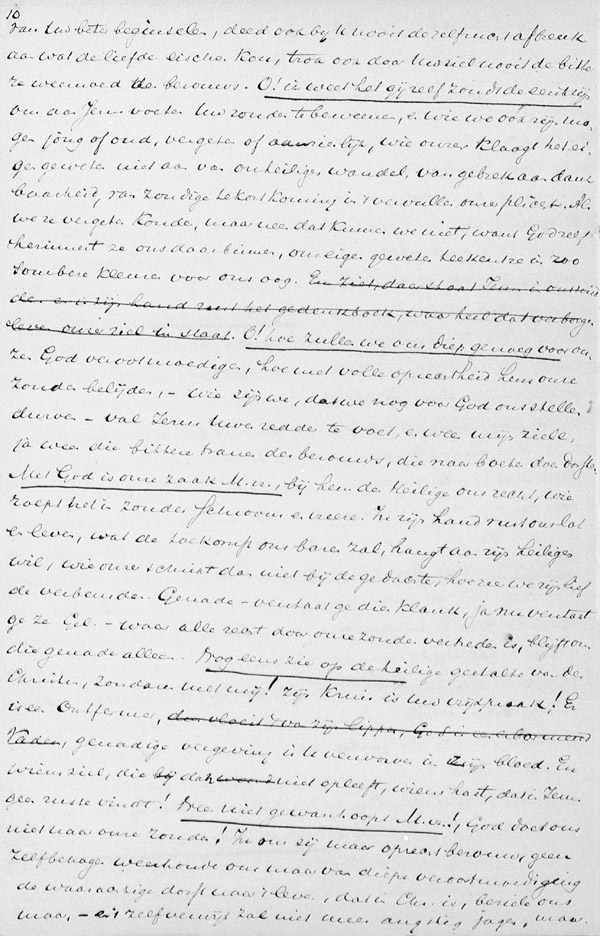 10
van Uw beter beginselen, deed ook bij U nooit de zelfmacht afbreuk
aan wat de liefde eischen kon, trok ook door Uw ziel nooit de bitte
re weemoed des berouws. O! ik weet het gij zelf zondt de
om aan Jezus voeten Uw zonden te beweenen, en wie we ook zijn mo-
gen jong of oud, vergeten of aanzienlijk, wie onzer klaagt het ei-
gen geweten niet aan van onheiligen wandel, van gebrek aan dank
baarheid, van zondige tekortkoming in 't vervullen onzer plicht. Als
we ze vergeten konden, maar nee dat kunnen we niet, want God zelf
herinnert ze ons daar binnen, ons eigen geweten teekent ze in zoo
sombere kleuren voor ons oog. En ziet, daar staat Jezus in ons mid
den en in zijn hand rust het gedenkboek, waar heel dat verborgen
leven onzer ziel in staat. O! hoe zullen we ons diep genoeg voor on
zen God verootmoedigen, hoe met volle oprechtheid hem onze
zonden belijden, – wie zijn we, dat we nog voor God ons stellen
durven – val Jezus Uwen redder te voet, en ween mijn ziele,
ja ween die bittere tranen des berouws, die naar boete doen dorsten
Met God is onze zaak M. vr., bij hem de Heilige ons recht, wie
roept het in zonder schroom en vreeze. In zijn hand rust ons lot
en leven, wat de toekomst ons baren zal, hangt aan zijn heiligen
wil, wie onzer schrikt dan niet bij de gedachte, hoezeer we zijn lief
de verbeurden. Genade – verstaat ge die klank, ja nu verstaat
ge ze Gel. – waar alle recht door onze zonden vertreden is, blijft ons
die genade alleen. Nog eens zie op de heilige gestalte van den
Christus, zondaar met mij! Zijn Kruis is Uw vrijspraak! Er
is een Ontfermer, dan vloeit 't van zijn lippen, God is een erbarmend
Vader, genadige vergeving is U verworven in zijn bloed. En
wiens ziel, die bij dat woord niet opleeft, wiens hart, dat in Jezus
geen ruste vindt! Nee niet gewanhoopt M. vr.!, God doet ons
niet naar onze zonden! In ons zij maar oprecht berouw, geen
zelfbehagen weerhoude ons maar van diepe verootmoediging
de waarachtige dorst naar 't leven, dat in Chr. is, beziele ons
maar, – en zelfverwijt zal niet meer angstig jagen, maar